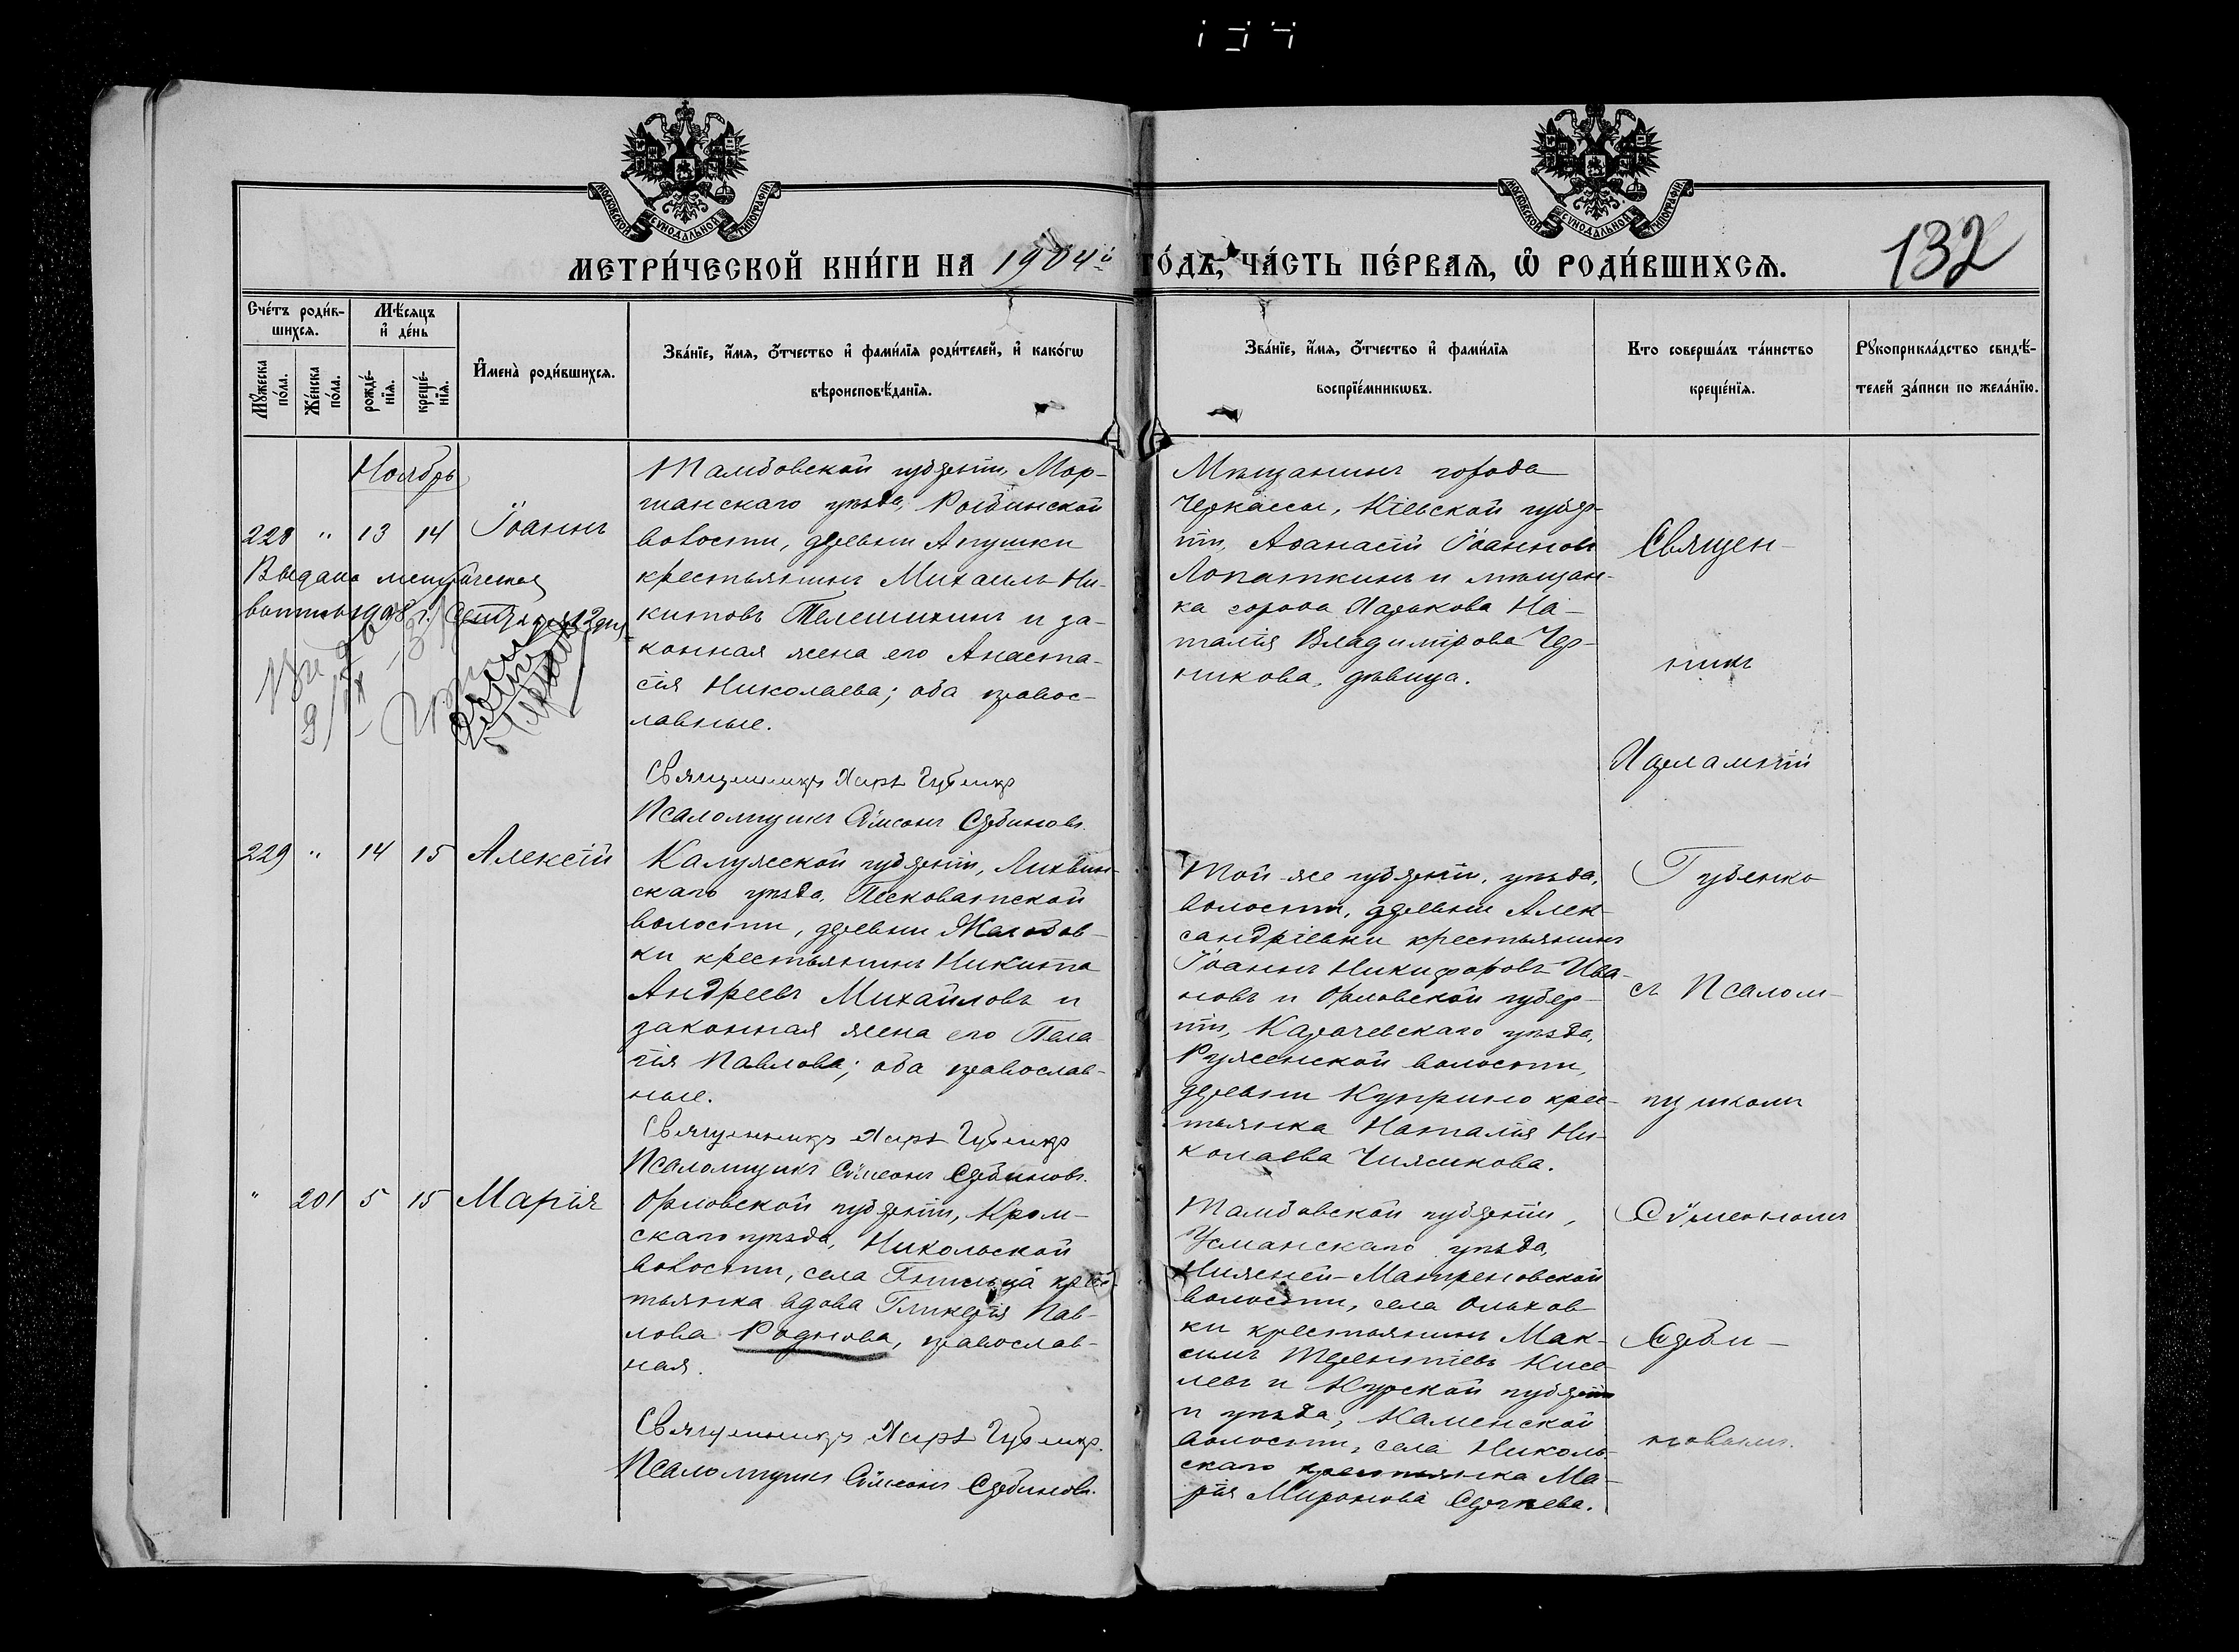 МОСКОВСКОЙ СѴНОДАЛЬНОЙ ТИПОГРАФІИ
МОСКОВСКОЙ СѴНОДАЛЬНОЙ ТИПОГРАФІИ
МЕТРИ́ЧЕСКОЙ КНИ́ГИ НА 1904й ГО́ДЪ, ЧА́СТЬ ПЕ́РВАЯ, Ѽ РОДИ́ВШИХСЯ.
132
Сче́тъ роди́в-
шихся.
Мѣ́сяцъ
и҆ де́нь
Мꙋ́жеска
по́ла.
Же́нска
по́ла.
рожде́-
нїя.
креще́-
нїя.
И҆мена̀ роди́вшихся.
Зва́нїе, и҆́мя, ѻ҆́тчество и҆ фами́лїя роди́телей, и҆ како́гѡ
вѣроисповѣ́данїя.
Зва́нїе, и҆́мя, ѻ҆́тчество и҆ фами́лїя
воспрїе́мникѡвъ.
Кто соверша́лъ та́инство
креще́нїя.
Рꙋкоприкла́дство свидѣ́-
телей за́писи по жела́нїю.
Ноябрь
228 " 13 14 Іоаннъ
Выдано метрическая
выпись 1908 г.
Тамбовской губерніи, Мор-
шанскаго уѣзда, Рыбинской
волости, деревни Апушки
крестьянинъ Михаилъ Ни-
китовъ Телешихинъ и за-
конная жена его Анаста-
сія Николаева; оба правос-
лавные.
Священникъ Харл. Губенко
Псаломщикъ Сѵмеонъ Сербиновъ.
Мѣщанинъ города
Черкассы, Кіевской губер-
ніи, Аѳанасій Іоанновъ
Лопаткинъ и мѣщан-
ка города Харькова На-
талія Владимірова Чер-
никова, дѣвица.
229 " 14 15 Алексій
Калужской губерніи, Лихвин-
скаго уѣзда, Песковатской
волости, деревни
ки крестьянинъ Никита
Андреевъ Михайловъ и
законная жена его Пела-
гія Павлова; оба православ-
ные.
Священникъ Харл. Губенко
Псаломщикъ Сѵмеонъ Сербиновъ.
Той-же губерніи, уѣзда,
волости, деревни Алек-
сандріевки крестьянинъ
Іоаннъ Никифоровъ Ива-
новъ и Орловской губер-
ніи, Карачевскаго уѣзда,
Руженской волости,
деревни Куприно крес-
тьянка Наталія Ни-
колаева Чижикова.
" 201 5 15 Марія
Орловской губерніи, Кром-
скаго уѣзда, Никольской
волости, села Гнильца крес-
тьянка вдова Гликерія Пав-
лова Роднова, православ-
ная.
Священникъ Харл. Губенко.
Псаломщикъ Сѵмеонъ Сербиновъ.
Тамбовской губерніи,
Усманскаго уѣзда,
Нижней-Матреновской
волости, села Ольхов
ки крестьянинъ Мак-
симъ Терентіевъ Кисе-
левъ и Курской губерніи
и уѣзда, Каменской
волости, села Николь-
скаго крестьянка Ма-
рія Миронова Сергѣева.
Священ-
никъ
Харлампій
Губенко
съ Псалом-
щикомъ
Сѵмеономъ
Серби-
новымъ.